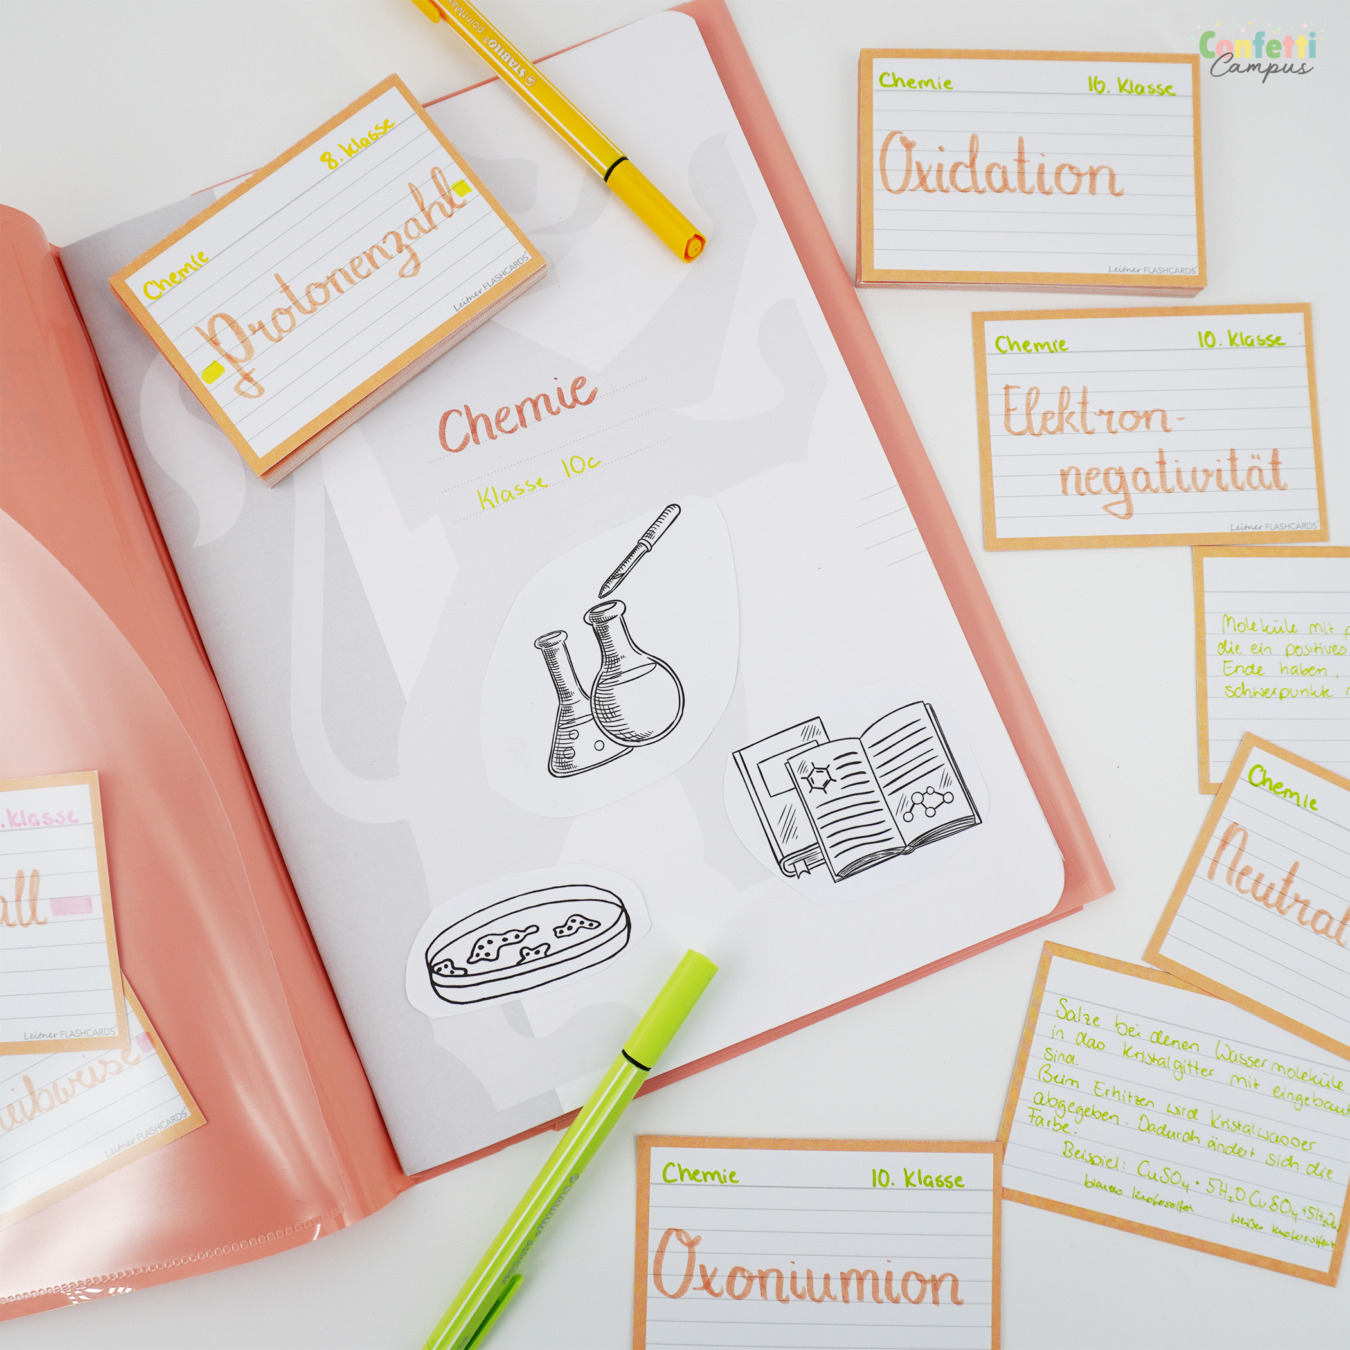 Confetti
Campus
STABILO pointMax
Chemie 8. Klasse
Protonenzahl
Leitner FLASHCARDS
Chemie 10. Klasse
Oxidation
Leitner FLASHCARDS
Chemie 10. Klasse
Elektron-
negativität
Leitner FLASHCARDS
Chemie
Klasse 10c
Moleküle mit
die ein positives
Ende haben,
schwerpunkte
Chemie
Neutral
. Klasse
all
Leitner FLASHCARDS
eibweise
Leitner FLASHCARDS
Salze bei denen Wassermoleküle
in das Kristalgitter mit eingebaut
sind.
Beim Erhitzen wird Kristalwasser
abgegeben. Dadurch ändert sich die
Farbe.
Beispiel: CuSO₄ · 5H₂O CuSO₄ + 5H₂O
blaues Kupfersulfat weißes Kupfersulfat
Chemie 10. Klasse
Oxoniumion